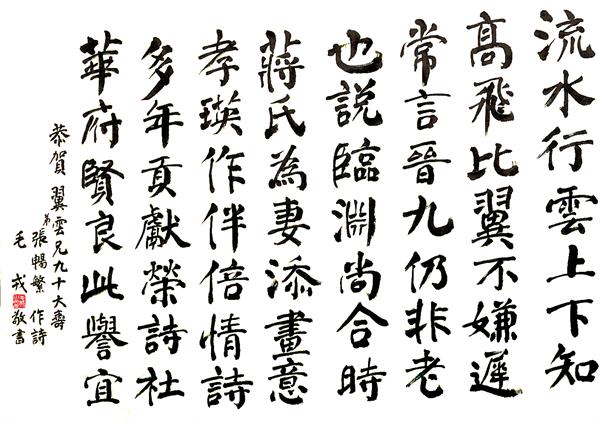 流水行雲上下知
高飛比翼不嫌遲
常言晉九仍非老
也説臨淵尚合時
蔣氏為妻添畫意
孝瑛作伴倍情詩
多年貢獻榮詩社
華府賢良此譽宜
恭賀 翼雲兄九十大壽
弟張暢繁 作詩
毛戎 敬書